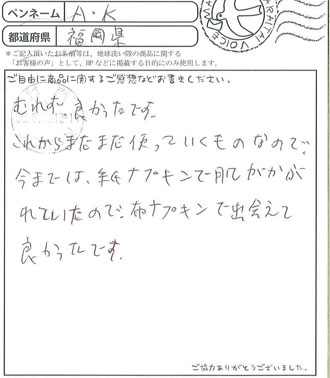 ペンネーム A・K
都道府県 福岡県
＊ご記入頂いたお名前等は、地球洗い隊の商品に関する
「お客様の声」として、HPなどに掲載する目的にのみ使用します。
ARAITAI VOICE
ご自由に商品に関するご感想などお書きください。
むれず良かったです。
これからまだまだ使っていくものなので、
今までは、紙ナプキンで肌がかぶ
れていたので、布ナプキンで出会えて
良かったです。
ご協力ありがとうございました。